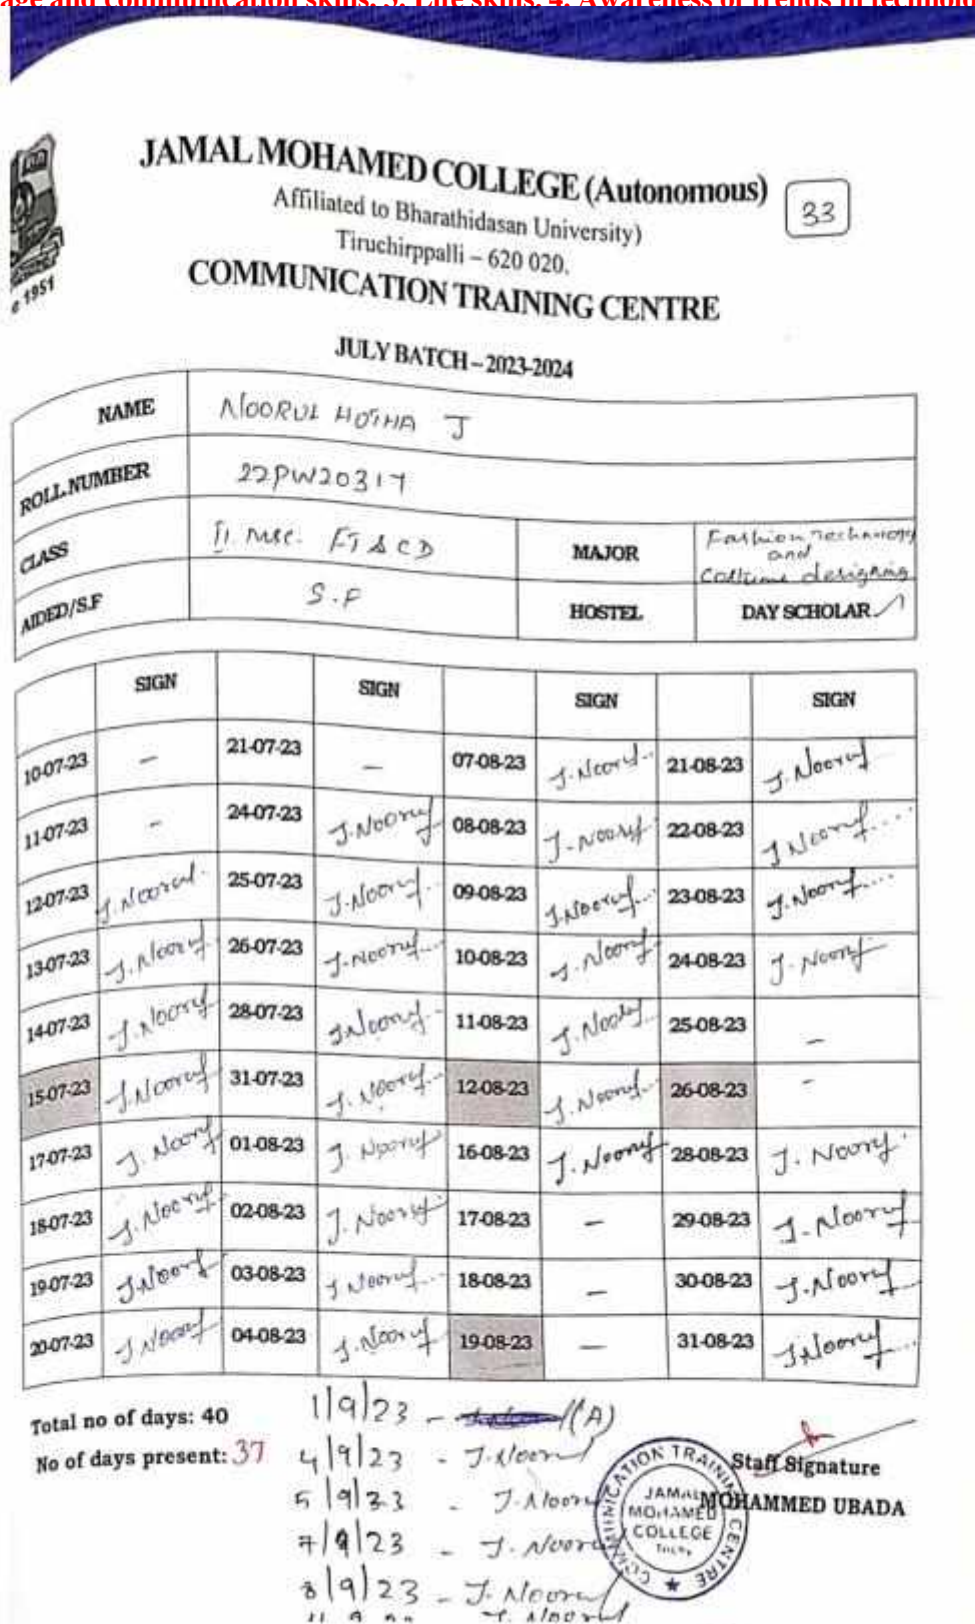 age and communication skills. 3. Life skills. 4. Awareness of trends in technolo
JAMAL MOHAMED COLLEGE (Autonomous)
33
Affiliated to Bharathidasan University)
Tiruchirppalli – 620 020.
e 1951
COMMUNICATION TRAINING CENTRE
JULY BATCH – 2023-2024
NAME NOORUL HOTHA J
ROLL.NUMBER 22PW20317
CLASS II. Msc. FT & CD MAJOR Fashion Technology and Coltume designing
AIDED/S.F S.F HOSTEL DAY SCHOLAR
SIGN SIGN SIGN SIGN
10-07-23 – 21-07-23 – 07-08-23 J.Noorul 21-08-23 J.Noorul
11-07-23 – 24-07-23 J.Noorul 08-08-23 J.Noorul 22-08-23 J.Noorul
12-07-23 J.Noorul 25-07-23 J.Noorul 09-08-23 J.Noorul 23-08-23 J.Noorul
13-07-23 J.Noorul 26-07-23 J.Noorul 10-08-23 J.Noorul 24-08-23 J.Noorul
14-07-23 J.Noorul 28-07-23 J.Noorul 11-08-23 J.Noorul 25-08-23 –
15-07-23 J.Noorul 31-07-23 J.Noorul 12-08-23 J.Noorul 26-08-23 –
17-07-23 J.Noorul 01-08-23 J.Noorul 16-08-23 J.Noorul 28-08-23 J.Noorul
18-07-23 J.Noorul 02-08-23 J.Noorul 17-08-23 – 29-08-23 J.Noorul
19-07-23 J.Noorul 03-08-23 J.Noorul 18-08-23 – 30-08-23 J.Noorul
20-07-23 J.Noorul 04-08-23 J.Noorul 19-08-23 – 31-08-23 J.Noorul
Total no of days: 40
No of days present: 37
1/9/23 - (A)
4/9/23 - J.Noorul
5/9/23 - J.Nooru
7/9/23 - J.Nooru
8/9/23 - J.Noorul
J.Noorul
COMMUNICATION TRAINING CENTRE
JAMAL
MOHAMED
COLLEGE
Staff Signature
MOHAMMED UBADA